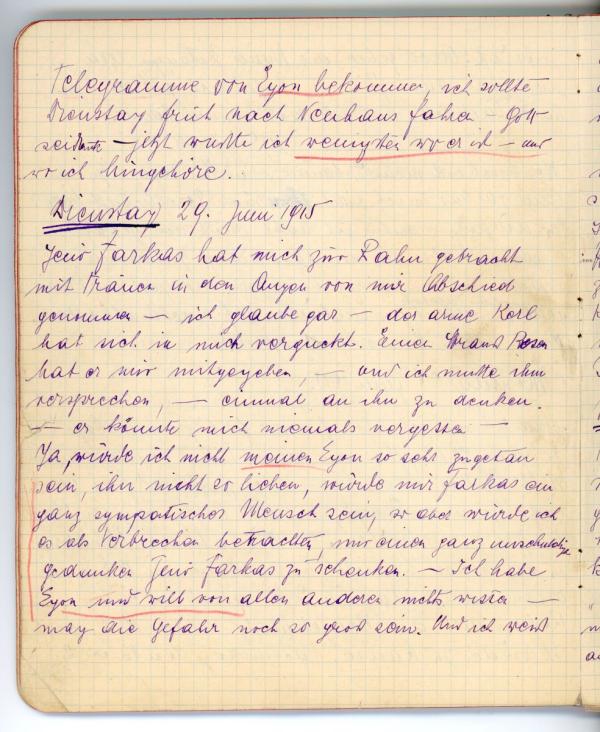 Telegramme von Egon bekommen, ich sollte
Dienstag früh nach Neuhaus fahren – Gott
seidank – jetzt wusste ich wenigsten wo er ist – und
wo ich hingehöre.
Dienstag 29. Juni 1915
Jenö Farkas hat mich zur Bahn gebracht
mit Tränen in den Augen von mir Abschied
genommen – ich glaube gar – der arme Kerl
hat sich in mich verguckt. Einen Strauss Rosen
hat er mir mitgegeben, – und ich musste ihm
versprechen, – einmal an ihn zu denken.
– er könnte mich niemals vergessen –
Ja, würde ich nicht meinen Egon so sehr zugetan
sein, ihn nicht so lieben, würde mir Farkas ein
ganz sympatischer Mensch sein, so aber würde ich
es als Verbrechen betrachten, nur einen ganz unschuldigen
gedanken Jenö Farkas zu schenken. – Ich habe
Egon und will von allen anderen nichts wissen –
mag die Gefahr noch so gross sein. Und ich weiss